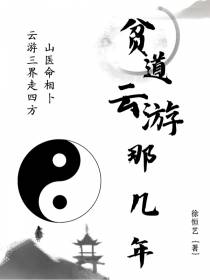 贫道云游那几年
山医命相卜
云游三界走四方
徐恒艺（著）